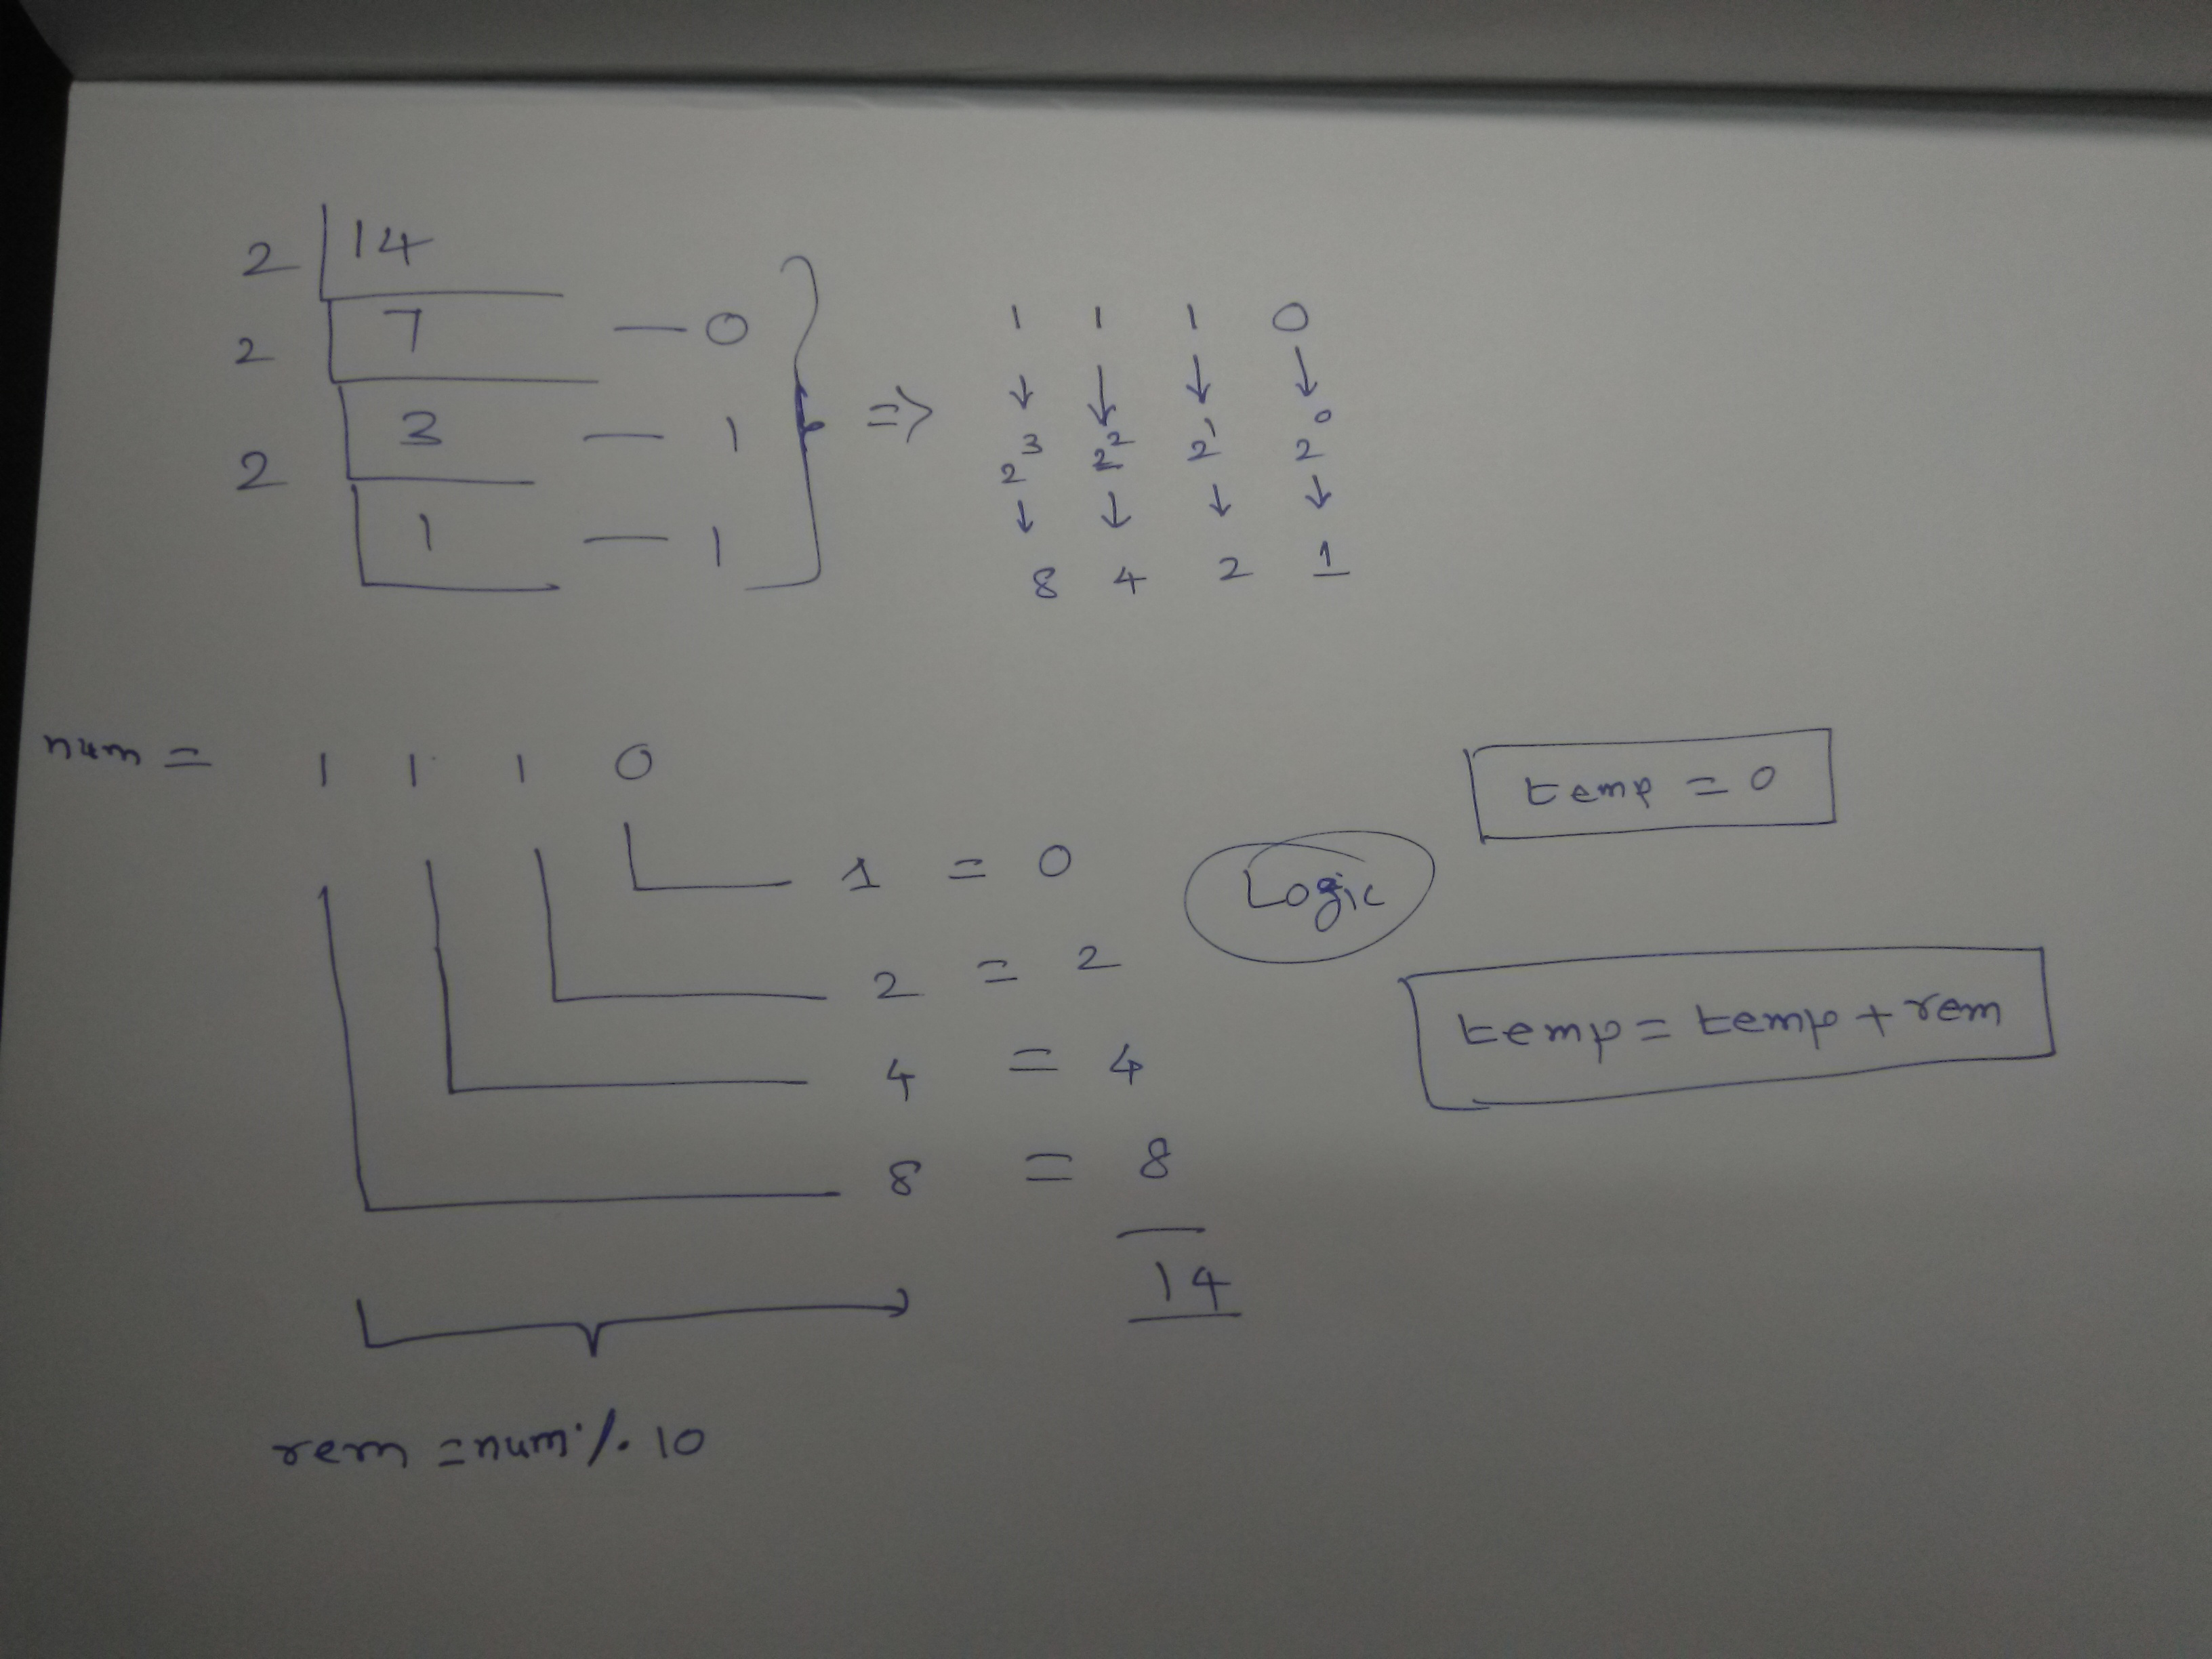 2 14
2 7 — 0
2 3 — 1
1 — 1
=>
1 1 1 0
↓ ↓ ↓ ↓
2³ 2² 2¹ 2⁰
↓ ↓ ↓ ↓
8 4 2 1
num = 1 1 1 0
1 = 0
2 = 2
4 = 4
8 = 8
14
rem = num % 10
Logic
temp = 0
temp = temp + rem